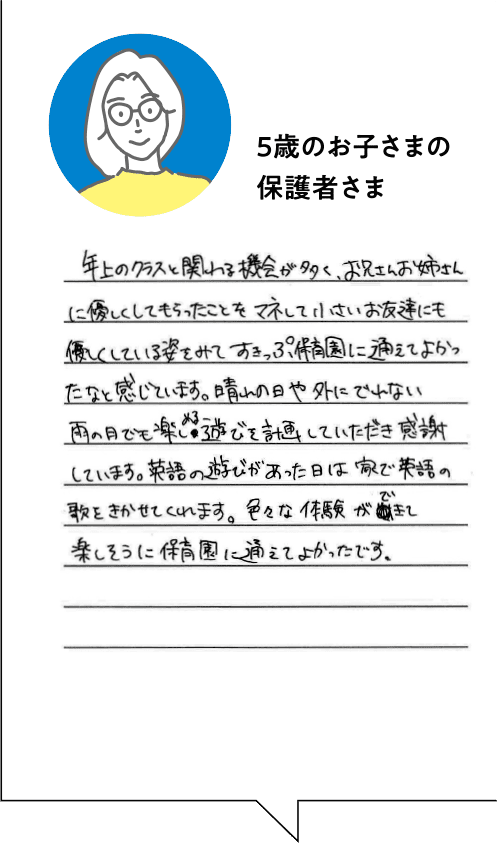 5歳のお子さまの
保護者さま
年上のクラスと関わる機会が多く、お兄さんお姉さん
に優しくしてもらったことをマネして小さいお友達にも
優しくしている姿をみてすきっぷ保育園に通えてよかっ
たなと感じています。晴れの日や外にでれない
雨の日でも楽しめる遊びを計画していただき感謝
しています。英語の遊びがあった日は家で英語の
歌をきかせてくれます。色々な体験ができて
楽しそうに保育園に通えてよかったです。